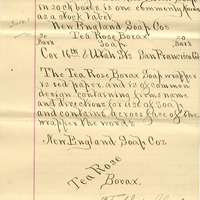 in 20 lb boxes is one commonly known
as a stock label.
New England Soap Co's
Tea Rose Borax
20 Bars Soap. 20 Bars
Cor 16th & Utah Sts San Francisco Ca
The Tea Rose Borax Soap wrapper
is red paper and is of common
design containing firms name
and directions for use of Soap
and contains across face of the
wrapper the words
New England Soap Co's
Tea Rose
Borax.